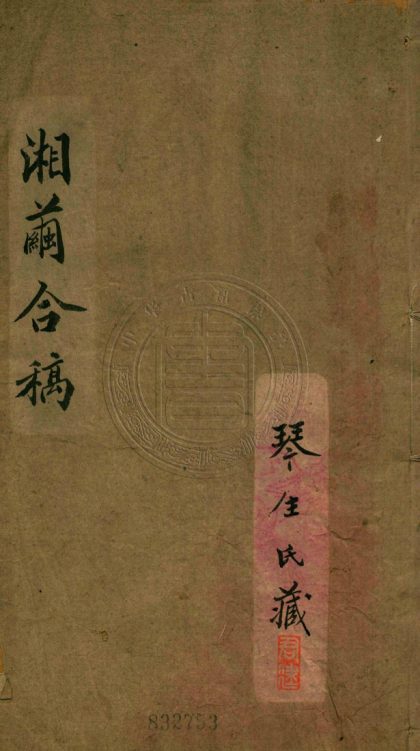 湘蘭合稿
琴生氏藏
832753